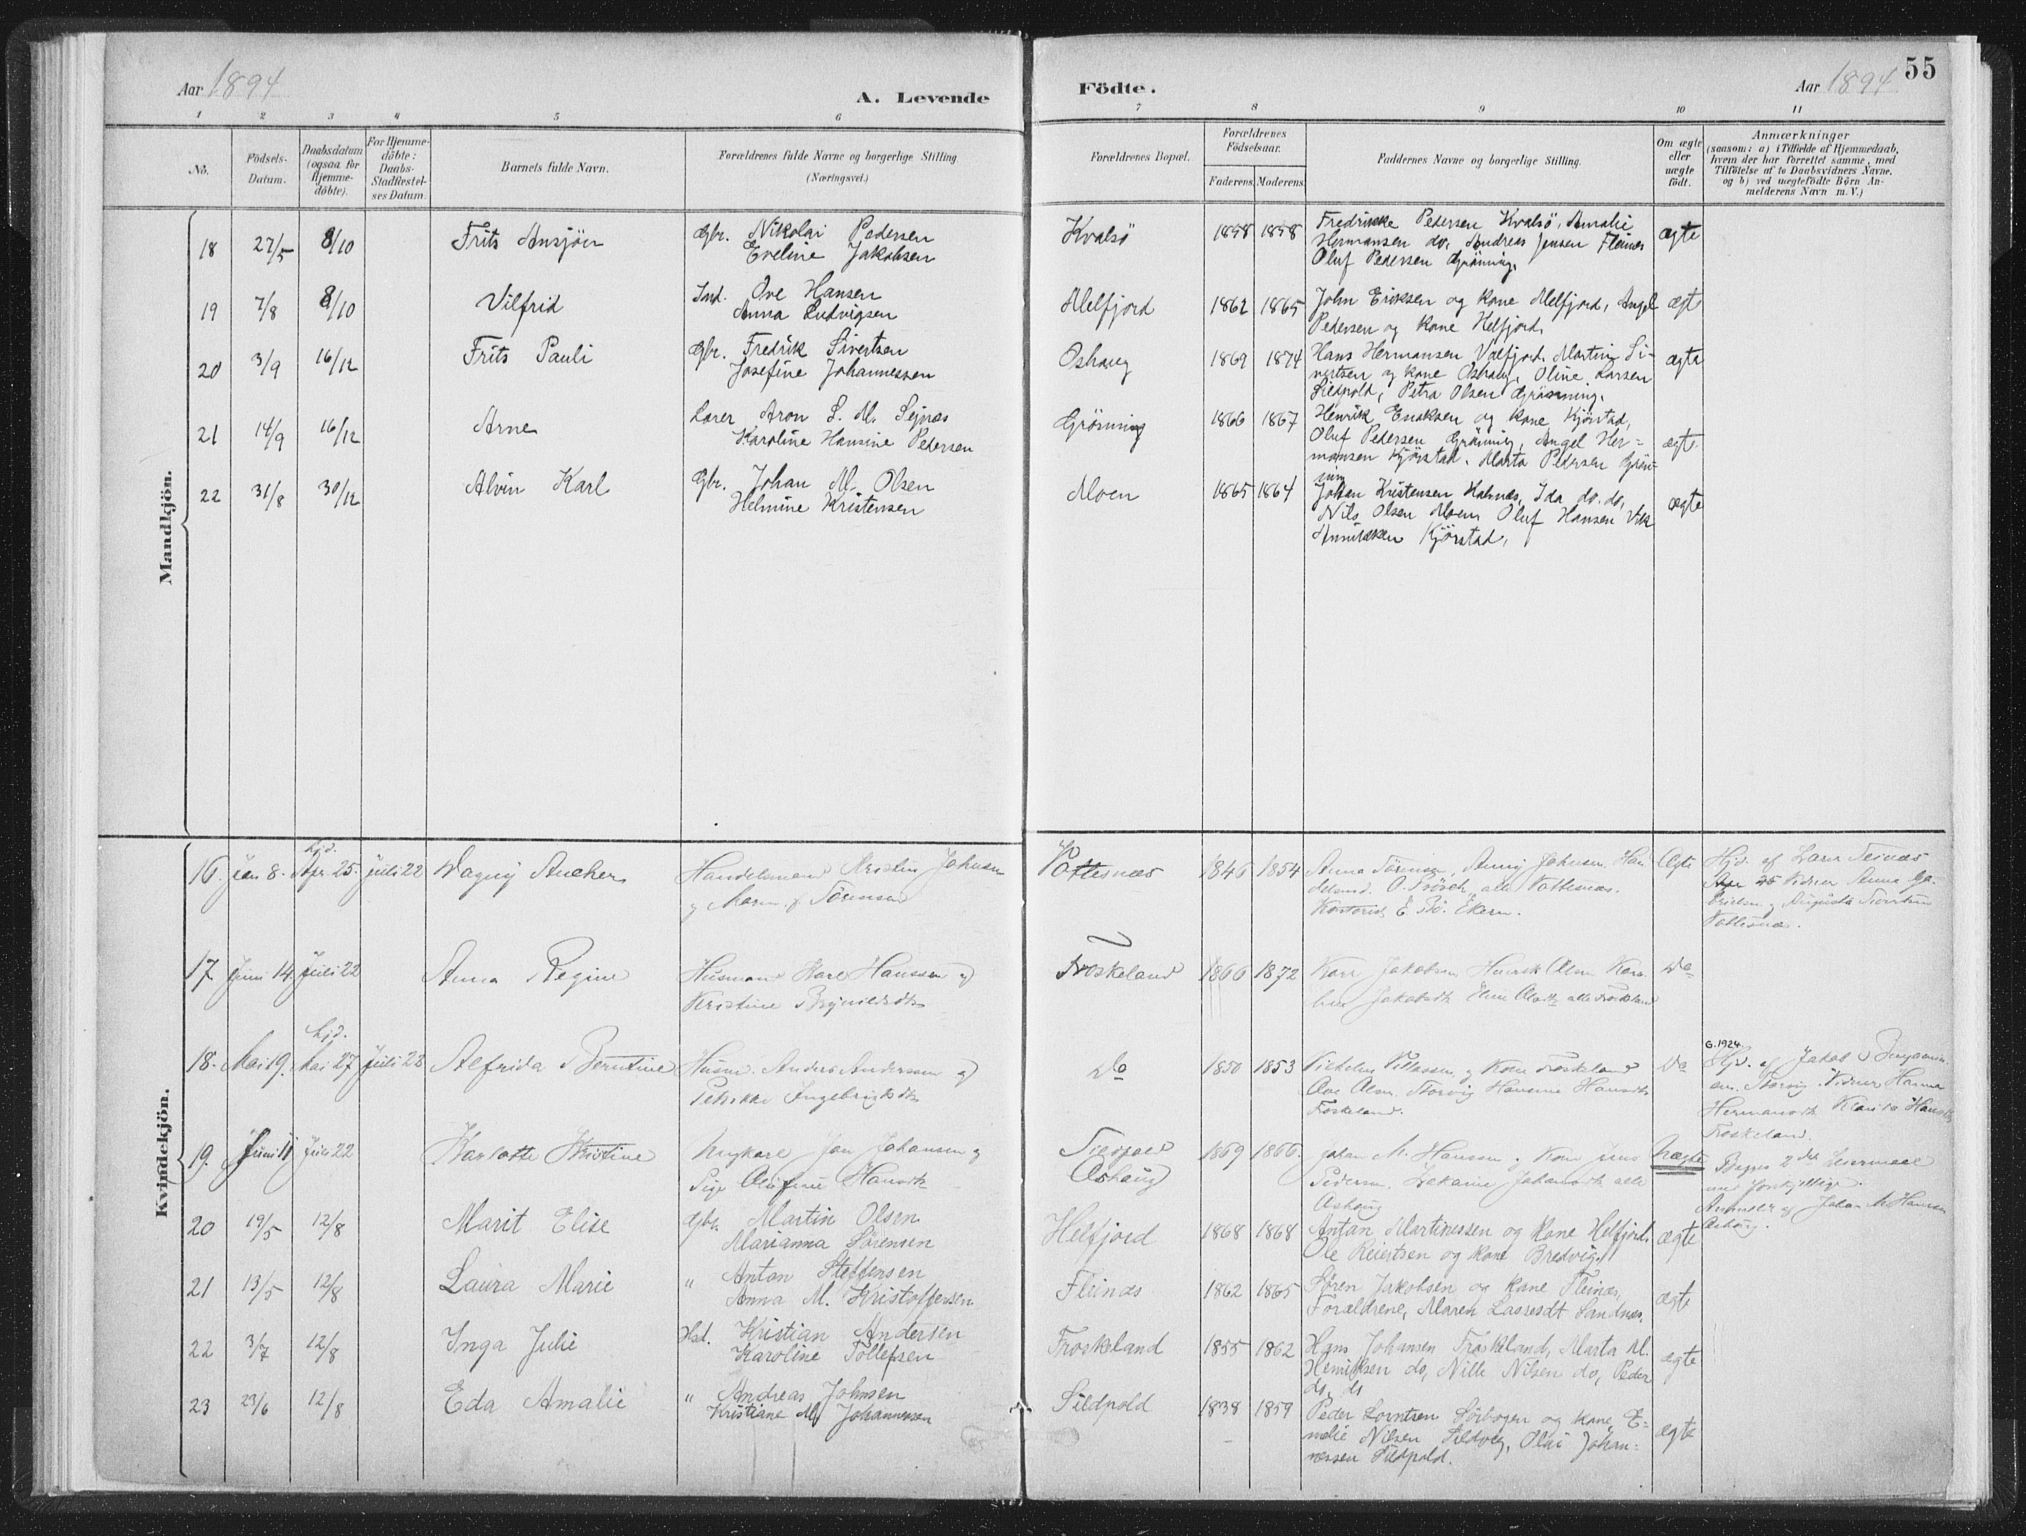 Aar 1894
A. Levende
Födte.
Aar 1894
55
1 2 3 4 5 6 7 8 9 10 11
No.
Födsels-
Datum.
Daabsdatum
(ogsaa for
Hjemme-
døbte).
For Hjemme-
døbte:
Daabs-
Stadfæstel-
ses Datum.
Barnets fulde Navn.
Forældrenes fulde Navne og borgerlige Stilling
(Næringsvei.)
Forældrenes Bopæl.
Forældrenes
Födselsaar.
Faderens. Moderens.
Faddernes Navne og borgerlige Stilling.
Om ægte
eller
uægte
født.
Anmærkninger
(saasom: a) i Tilfælde af Hjemmedaab,
hvem der har forrettet samme, med
Tilføielse af to Daabsvidners Navne,
og b) ved uægtefødte Børn An-
melderens Navn m. V.)
Mandkjön.
18 27/5 8/10 Frits Ansjön Gbr. Nikolai Pedersen
Eveline Jakobsen
Kvalsö 1858 1858 Fredrikke Pedersen Kvalsö, Amalie
Hermansen do, Andreas Jensen Fleines
Oluf Pedersen Gröning.
ægte
19 7/8 8/10 Vilfrid Ind. Ove Hansen
Anna Ludvigsen
Melfjord 1862 1865 John Eriksen og kone Melfjord, Angel
Pedersen og kone Helfjord.
ægte
20 3/9 16/12 Frits Pauli Gbr. Fredrik Sivertsen
Josefine Johannessen
Oshaug 1869 1874 Hans Hermansen Valfjord, Martin Si-
vertsen og kone Oshaug, Oline Larsen
Sildpold, Petra Olsen Gröning.
ægte
21 14/9 16/12 Arne Lærer Aron S. M. Sejnæs
Karoline Hansine Pedersen
Gröning 1866 1867 Henrik Enoksen og kone Kjörstad,
Oluf Pedersen Gröning, Angel Her-
mansen Kjörstad, Marta Pedersen Grön-
ing
ægte
22 31/8 30/12 Alvin Karl Gbr. Johan M. Olsen
Helmine Kristensen
Moen 1865 1864 Johan Kristensen Halnæs, Ida do. do,
Nils Olsen Moen, Oluf Hansen Vik
Kjörstad,
ægte
Kvindekjön.
16. Jan 8. hjd. Apr 25. Juli 22 Dagny Ancker Handelsmand Kristin Johnsen
og Maren Sörensen
Vottesnæs 1846 1854 Anna Sörensen, Anny Johnsen, Han
delsmd. O. alle Vottesnæs.
E. Bö. Ekern.
Ægte Hjd. af Lærer Sejnæs
Apr 25 Vidner Anna Ga-
brielsen og Augusta Sivertsen
Vottesnæs.
17. Juni 14 Juli 22 Anna Regine Husmand Karl Hanssen og
Kristine Brynildsdtr
Froskeland 1866 1872 Karl Jakobsen Henrik Olsen
Jakobsdtr Oline Olsdtr alle Froskeland
Do
18. Mai 19. hjd. Mai 27 Juli 22 Alfrida Berntine Husm. Anders Andersen og
Petrikke Ingebrigtsdtr
Do 1850 1853 og Kone Froskeland
Ove Olsen Storvig Hansine Hansdtr
Froskeland.
Do G. 1924
Hjd. af Jakob Benjamin-
sen Storvig. Vidner Hanna
Hermansdtr Hansdtr
Froskeland.
19. Juni 11 Juli 22 Karlotte Kristine Ungkarl Jon Johansen og
Pige Olufine Hansdtr
Sildpold
Oshaug
1869 1866. Johan M. Hanssen og Kone Jens
Pedersen, Johansdtr alle
Oshaug
Uægte Begges 2det Leiermaal
med forskjellige.
Anmeldt af Johan M. Hanssen
Oshaug.
20 19/5 12/8 Marit Elise Gbr. Martin Olsen
Marianna Sörensen
Helfjord 1868 1868 Antan Martinessen og kone Helfjord.
Ole Reiertsen og kone Bredvig.
ægte
21 13/5 12/8 Laura Marie " Anton Steffensen
Anna M. Kristoffersen
Fleinæs 1862 1865 Sören Jakobsen og kone Fleines,
Forældrene, Maren Lassesdt Sandnes.
ægte
22 3/7 12/8 Inga Julie Hsd. Kristian Andersen
Karoline Tollefsen
Froskeland 1855 1862 Hans Johansen Froskeland, Marta M.
Henriksen do, Nille Nilsen do, Peder
do, do
ægte
23 23/6 12/8 Eda Amalie " Andreas Johnsen
Kristiane M. Johannessen
Sildpold 1838 1859 Peder Lorntsen Sörbogen og kone, E-
melie Nilsen Sildpold, Olai Johan-
nessen Sildpold.
ægte